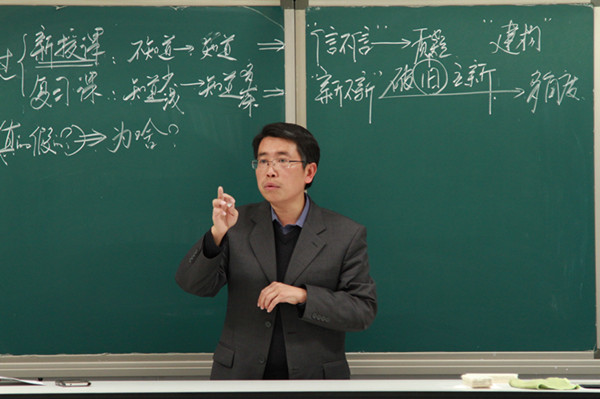 过 新授课：不知道→知道 ⇒ “信不信”→质疑 “建构”
复习课：知道不成线→知道 ⇒ “新不新” 破(旧)立新→多向度
(真的假的?)⇒为啥?